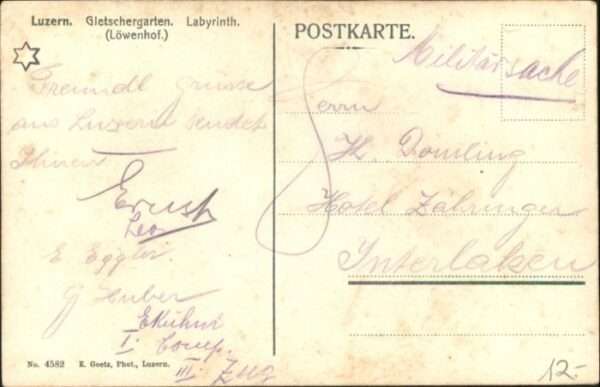 Luzern. Gletschergarten. Labyrinth.
(Löwenhof.)
Freundl grüsse
aus Luzern sendet
Ihnen
Ernst
Leo
E Eggler
G Huber
I. Comp.
III. Zug
No. 4582 E. Goetz, Phot., Luzern.
POSTKARTE.
Militärsache
Herrn
Hotel Zähringer
Interlaken
12.-